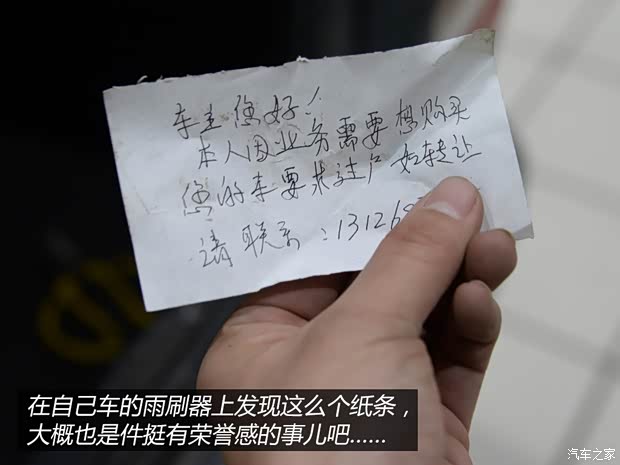 车主您好！
本人因业务需要想购买
您的车要求过户如转让
请联系：13126
在自己车的雨刷器上发现这么个纸条，
大概也是件挺有荣誉感的事儿吧......
汽车之家